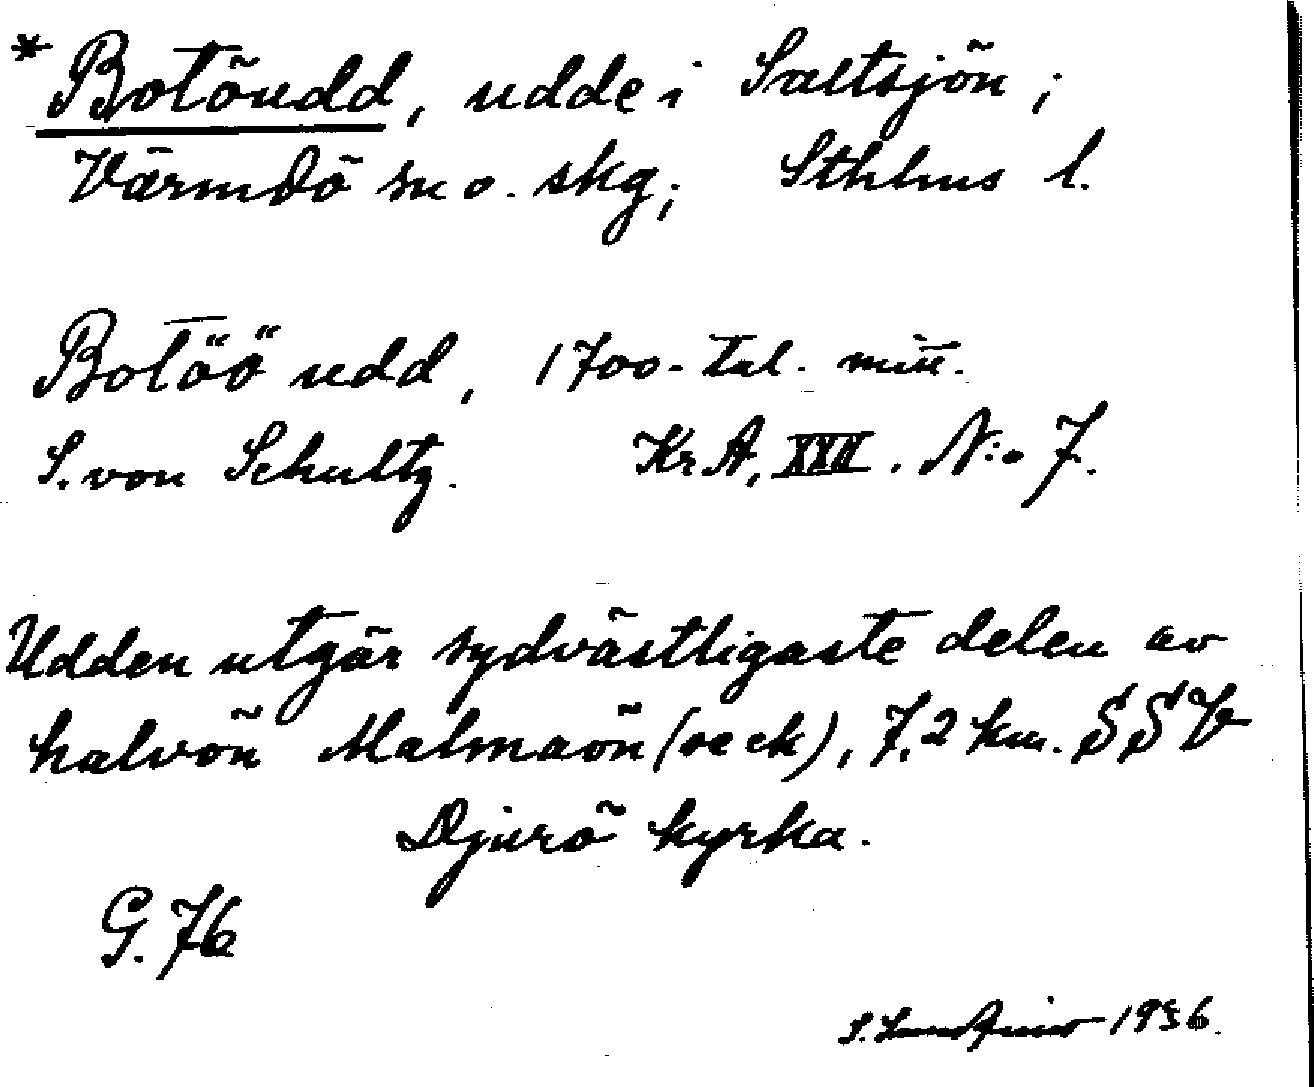 * Botöudd, udde i Saltsjön;
Värmdö sn o. skg; Sthlms l.
Botöö udd, 1700-tal. mitt.
S. von Schultz. KrA, XXII. N:o 7.
Udden utgör sydvästligaste delen av
halvön Malmaön (se ek), 7,2 km. SSV
Djurö kyrka.
G. 76
S. 1936.